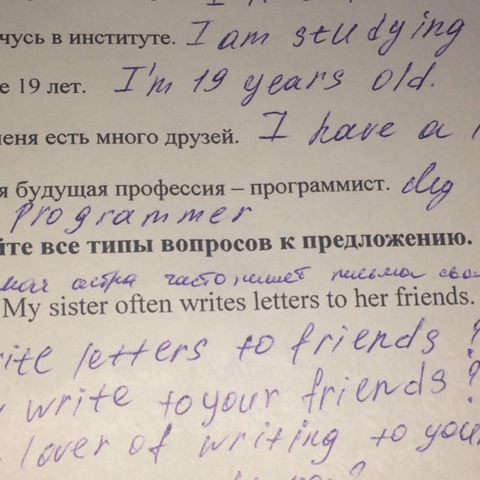 чусь в институте. I am studying
е 19 лет. I'm 19 years old.
меня есть много друзей. I have a
я будущая профессия – программист.
programmer
йте все типы вопросов к предложению.
моя сестра часто пишет письма
My sister often writes letters to her friends.
ite letters to friends ?
write to your friends ?
lover of writing to you